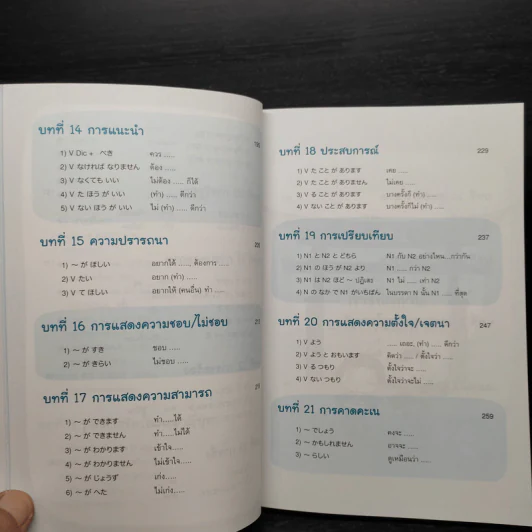 บทที่ 14 การแนะนำ
1) V Dic + べき ควร .....
2) V なければ なりません ต้อง .....
3) V なくても いい ไม่ต้อง ..... ก็ได้
4) V た ほう が いい (ทำ) ..... ดีกว่า
5) V ない ほう が いい ไม่ (ทำ) ..... ดีกว่า
บทที่ 15 ความปรารถนา
1) ～ が ほしい อยากได้ ....., ต้องการ .....
2) V たい อยาก (ทำ) .....
3) V て ほしい อยากให้ (คนอื่น) ทำ .....
บทที่ 16 การแสดงความชอบ/ไม่ชอบ
1) ～ が すき ชอบ .....
2) ～ が きらい ไม่ชอบ .....
บทที่ 17 การแสดงความสามารถ
1) ～ が できます ทำ.....ได้
2) ～ が できません ทำ.....ไม่ได้
3) ～ が わかります เข้าใจ.....
4) ～ が わかりません ไม่เข้าใจ.....
5) ～ が じょうず เก่ง.....
6) ～ が へた ไม่เก่ง.....
บทที่ 18 ประสบการณ์ 229
1) V た こと が あります เคย .....
2) V た こと が ありません ไม่เคย .....
3) V る こと が あります บางครั้งก็ (ทำ) .....
4) V ない こと が あります บางครั้งก็ไม่ (ทำ) .....
บทที่ 19 การเปรียบเทียบ 237
1) N1 と N2 と どちら N1 กับ N2 อย่างไหน...กว่ากัน
2) N1 の ほう が N2 より N1 ..... กว่า N2
3) N1 は N2 ほど ～ ปฏิเสธ N1 ไม่ ..... เท่า N2
4) N の なか で N1 がいちばん ในบรรดา N นั้น N1 ..... ที่สุด
บทที่ 20 การแสดงความตั้งใจ/เจตนา 247
1) V よう ..... เถอะ, (ทำ) ..... ดีกว่า
2) V よう と おもいます คิดว่า ..... / ตั้งใจว่า .....
3) V る つもり ตั้งใจว่าจะ .....
4) V ない つもり ตั้งใจว่าจะไม่ .....
บทที่ 21 การคาดคะเน 259
1) ～ でしょう คงจะ .....
2) ～ かもしれません อาจจะ .....
3) ～ らしい ดูเหมือนว่า .....